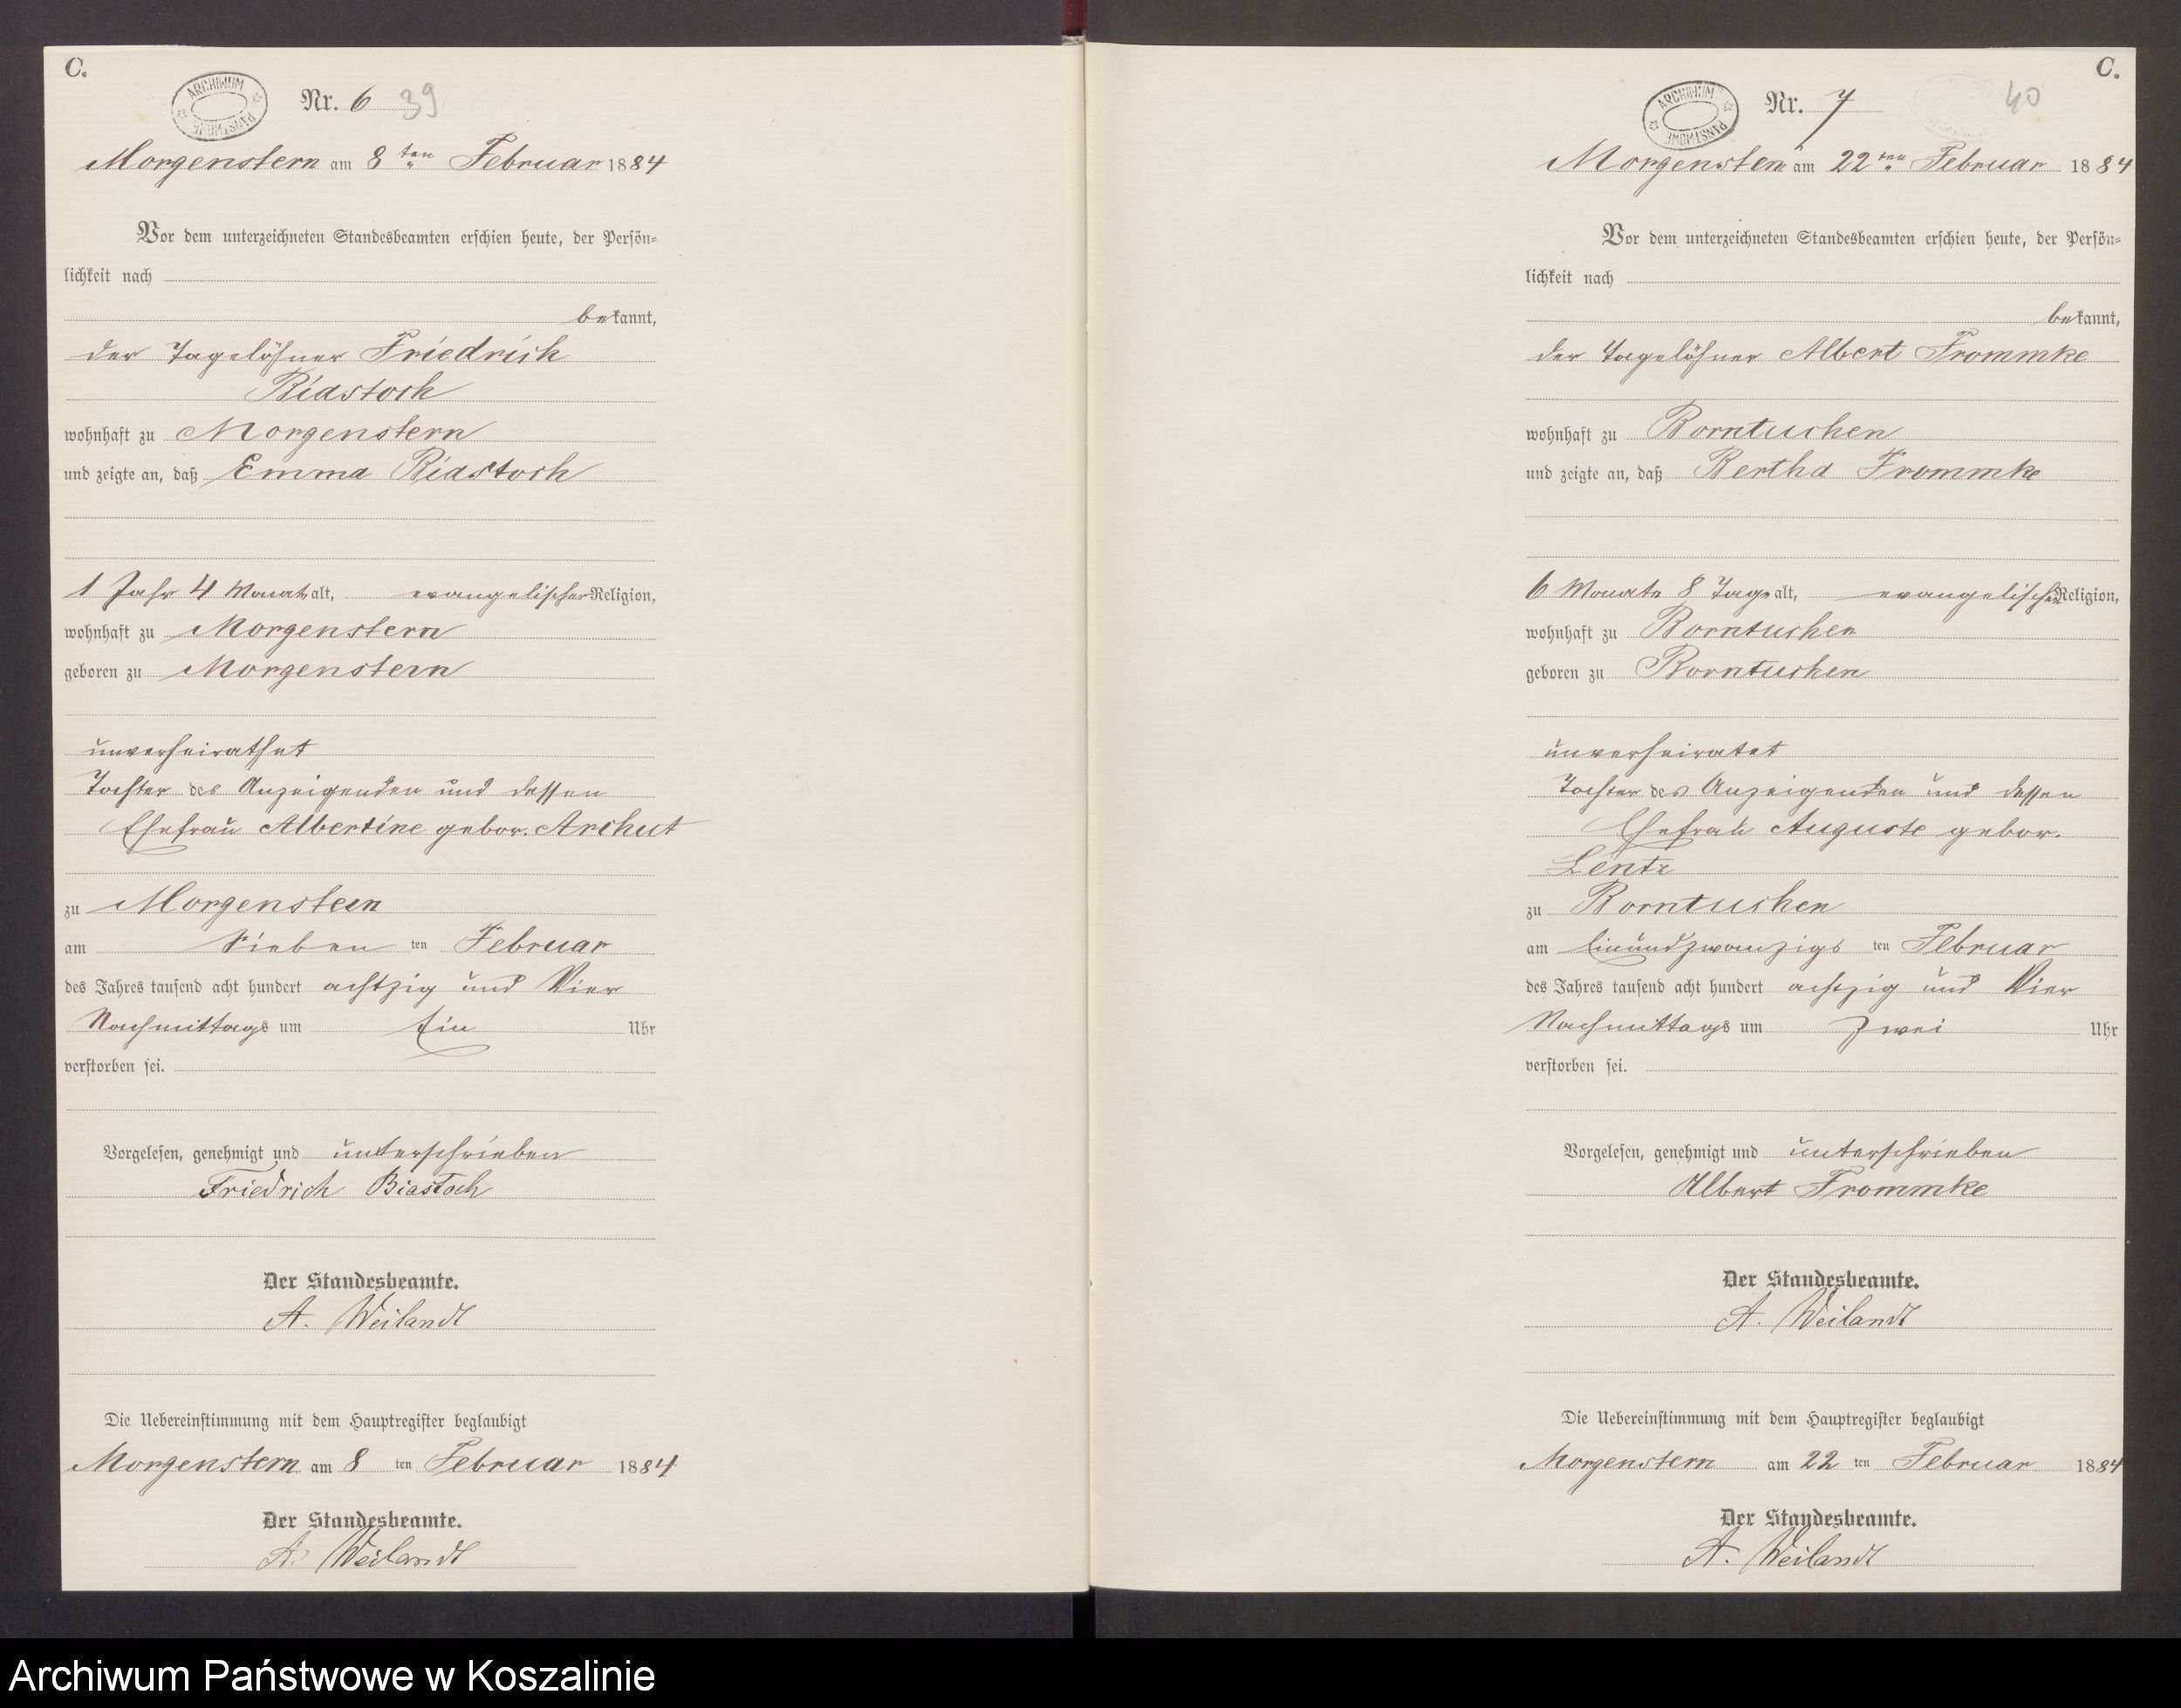 C.
ARCHIWUM PAŃSTWOWE
Nr. 6 39
Morgenstern am 8 ten Februar 1884
Vor dem unterzeichneten Standesbeamten erschien heute, der Persön=
lichkeit nach
bekannt,
der Tagelöhner Friedrich
Biastoch
wohnhaft zu Morgenstern
und zeigte an, daß Emma Biastoch
1 Jahr 4 Monat alt, evangelischer Religion,
wohnhaft zu Morgenstern
geboren zu Morgenstern
unverheirathet
Tochter des Anzeigenden und dessen
Ehefrau Albertine gebor. Archut
zu Morgenstern
am Sieben ten Februar
des Jahres tausend acht hundert achtzig und Vier
Nachmittags um Ein Uhr
verstorben sei.
Vorgelesen, genehmigt und unterschrieben
Friedrich Biastoch
Der Standesbeamte.
A. Weilandt
Die Uebereinstimmung mit dem Hauptregister beglaubigt
Morgenstern am 8 ten Februar 1884
Der Standesbeamte.
A. Weilandt
C.
ARCHIWUM PAŃSTWOWE
Nr. 7 40
Morgenstern am 22 ten Februar 1884
Vor dem unterzeichneten Standesbeamten erschien heute, der Persön=
lichkeit nach
bekannt,
der Tagelöhner Albert Frommke
wohnhaft zu Borntuchen
und zeigte an, daß Bertha Frommke
6 Monate 8 Tage alt, evangelischer Religion,
wohnhaft zu Borntuchen
geboren zu Borntuchen
unverheiratet
Tochter des Anzeigenden und dessen
Ehefrau Auguste gebor.
Lentz
zu Borntuchen
am Einundzwanzigs ten Februar
des Jahres tausend acht hundert achtzig und Vier
Nachmittags um Zwei Uhr
verstorben sei.
Vorgelesen, genehmigt und unterschrieben
Albert Frommke
Der Standesbeamte.
A. Weilandt
Die Uebereinstimmung mit dem Hauptregister beglaubigt
Morgenstern am 22 ten Februar 1884
Der Standesbeamte.
A. Weilandt
Archiwum Państwowe w Koszalinie